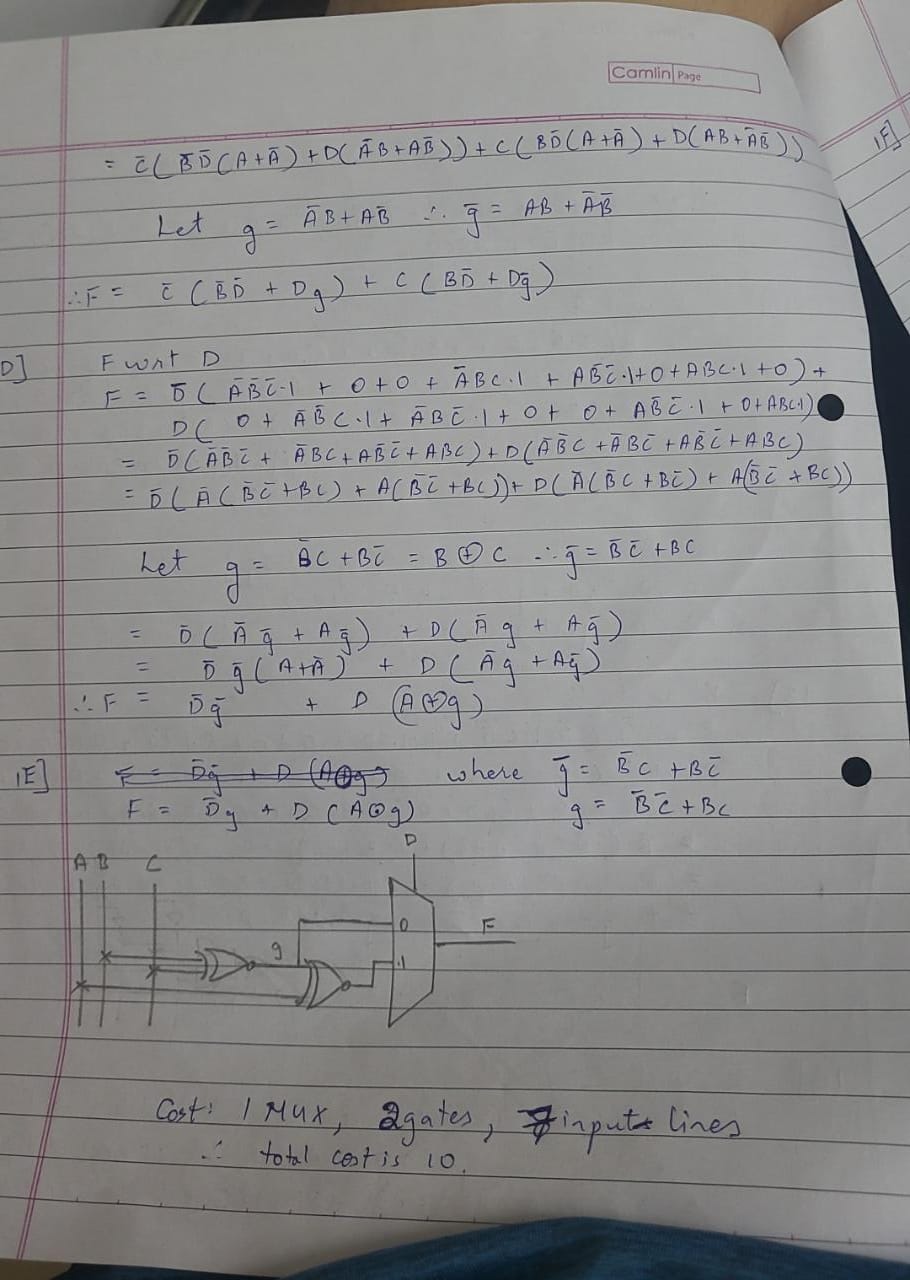 Camlin Page
= C̄(B̄D̄(A+Ā) + D(ĀB+AB̄)) + C(BD̄(A+Ā) + D(AB+ĀB̄))
1F]
Let g = ĀB+AB̄ ∴ ḡ = AB + ĀB̄
∴F = C̄(B̄D̄ + Dg) + C(BD̄ + Dḡ)
D] F wrt D
F = D̄(ĀB̄C̄·1 + 0+0 + ĀBC·1 + AB̄C̄·1+0+ABC·1+0) +
D(0 + ĀB̄C·1+ ĀBC̄·1+0+ 0+ AB̄C̄·1 + 0+ABC·1)
= D̄(ĀB̄C̄ + ĀBC+AB̄C̄+ABC)+D(ĀB̄C+ĀBC̄+AB̄C̄+ABC)
= D̄(Ā(B̄C̄+BC) + A(B̄C̄+BC))+ D(Ā(B̄C+BC̄) + A(B̄C̄+BC))
Let g = B̄C+BC̄ = B⊕C ∴ ḡ = B̄C̄+BC
= D̄(Āḡ + Aḡ) + D(Āg + Aḡ)
= D̄ḡ(A+Ā) + D(Āg+Aḡ)
∴ F = D̄ḡ + D(A⊕g)
1E] F = D̄ḡ + D(A⊕g) where ḡ = B̄C+BC̄
F = D̄g + D(A⊙g) g = B̄C̄+BC
D
A B C
0
F
g
1
Cost: 1 MUX, 2gates, 7 input lines
∴ total cost is 10.